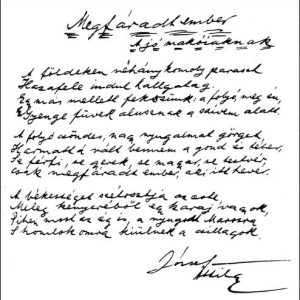 Megfáradt ember
A jó makóiaknak
A földeken néhány komoly paraszt
Hazafelé indul hallgatag.
Egymás mellett fekszünk: a folyó meg én,
Gyenge füvek alusznak a szivem alatt.
A folyó csöndes, nagy nyugalmat görget,
Harmattá vált bennem a gond és teher,
Se férfi, se gyerek, se magyar, se testvér,
Csak megfáradt ember, aki itt hever.
A békességet szétosztja az este,
Meleg kenyeréből egy karaj vagyok,
Pihen most az ég is, a nyugodt Marosra
S homlokomra kiülnek a csillagok.
József
Attila